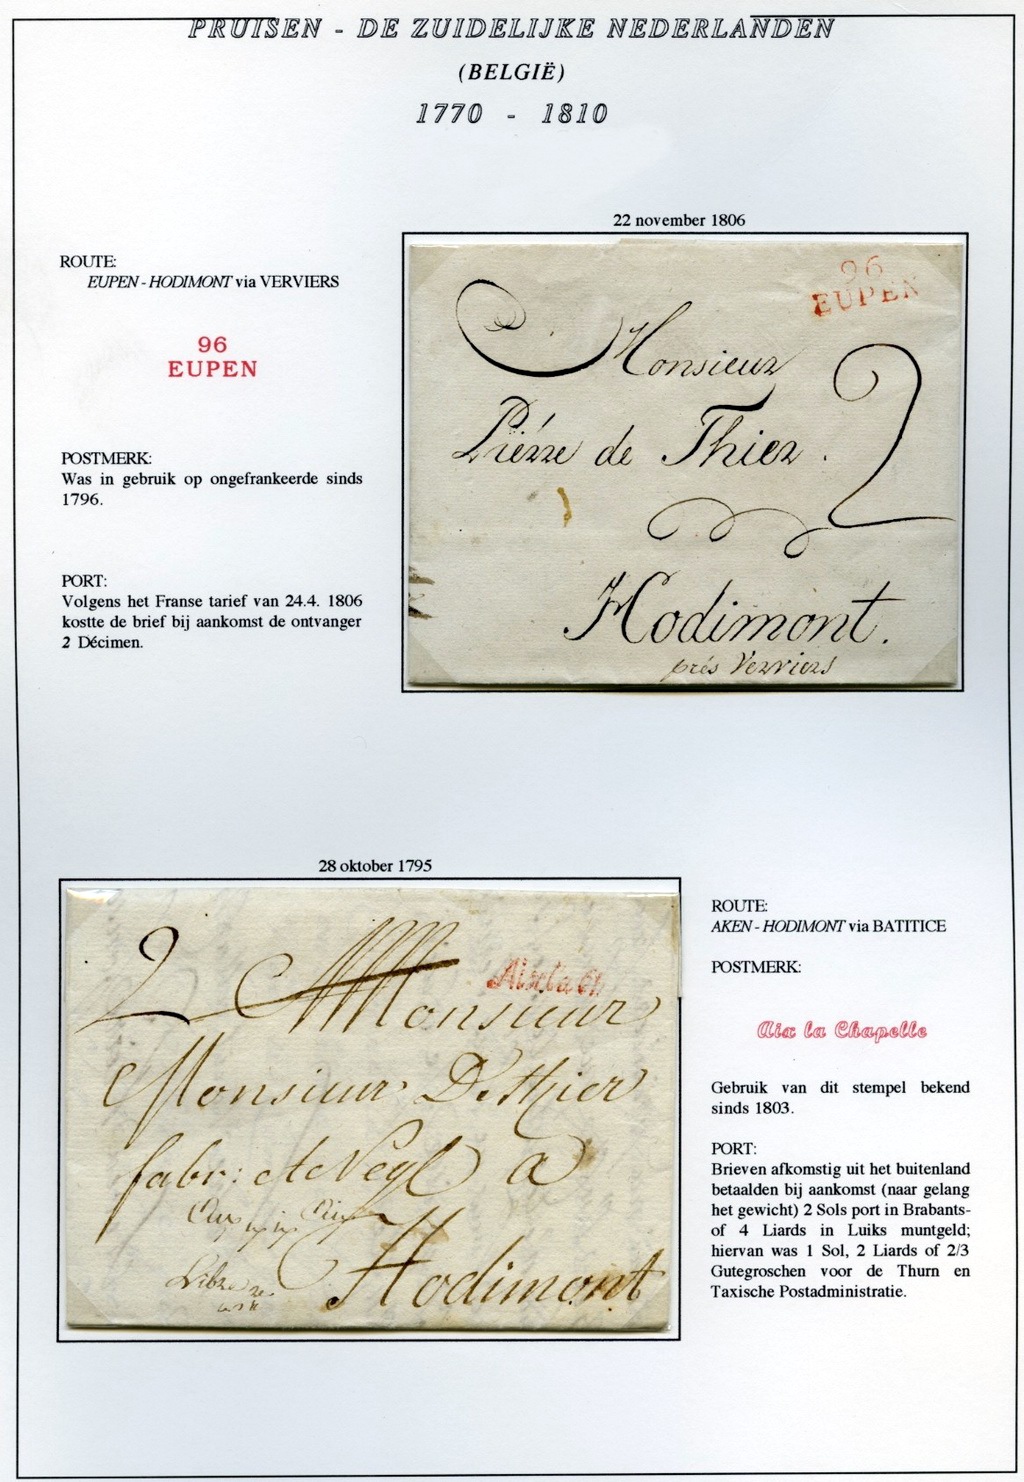 PRUISEN - DE ZUIDELIJKE NEDERLANDEN
(BELGIË)
1770 - 1810
22 november 1806
ROUTE:
EUPEN - HODIMONT via VERVIERS
96
EUPEN
POSTMERK:
Was in gebruik op ongefrankeerde sinds
1796.
PORT:
Volgens het Franse tarief van 24.4. 1806
kostte de brief bij aankomst de ontvanger
2 Décimen.
96
EUPEN
Monsieur
Piérre de Thier.
2
Hodimont.
prés Verviers
28 oktober 1795
2
Aix la Ch
Monsieur
Monsieur De Thier
fabr: et Negt a
Hodimont
ROUTE:
AKEN - HODIMONT via BATITICE
POSTMERK:
Aix la Chapelle
Gebruik van dit stempel bekend
sinds 1803.
PORT:
Brieven afkomstig uit het buitenland
betaalden bij aankomst (naar gelang
het gewicht) 2 Sols port in Brabants-
of 4 Liards in Luiks muntgeld;
hiervan was 1 Sol, 2 Liards of 2/3
Gutegroschen voor de Thurn en
Taxische Postadministratie.